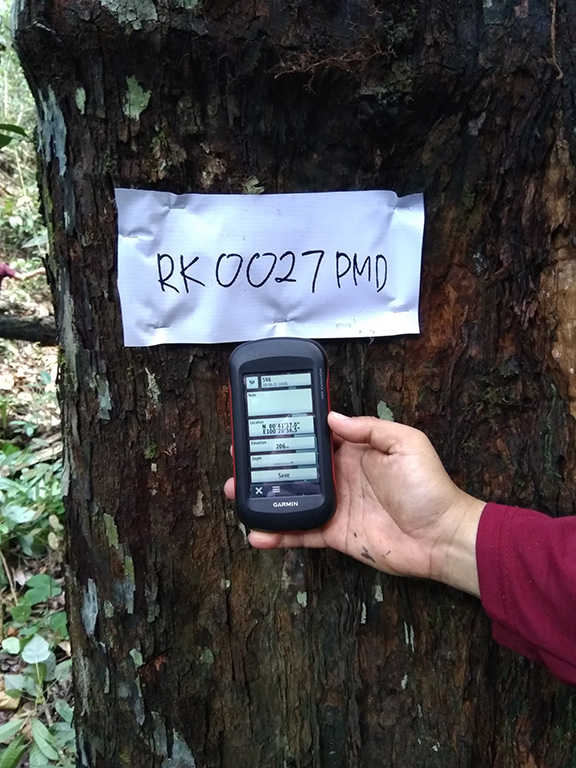 RK 0027 PMD
598
Note
Location
N 00°41'17.0"
E100°20'56.5"
Elevation
206m
Depth
Save
GARMIN